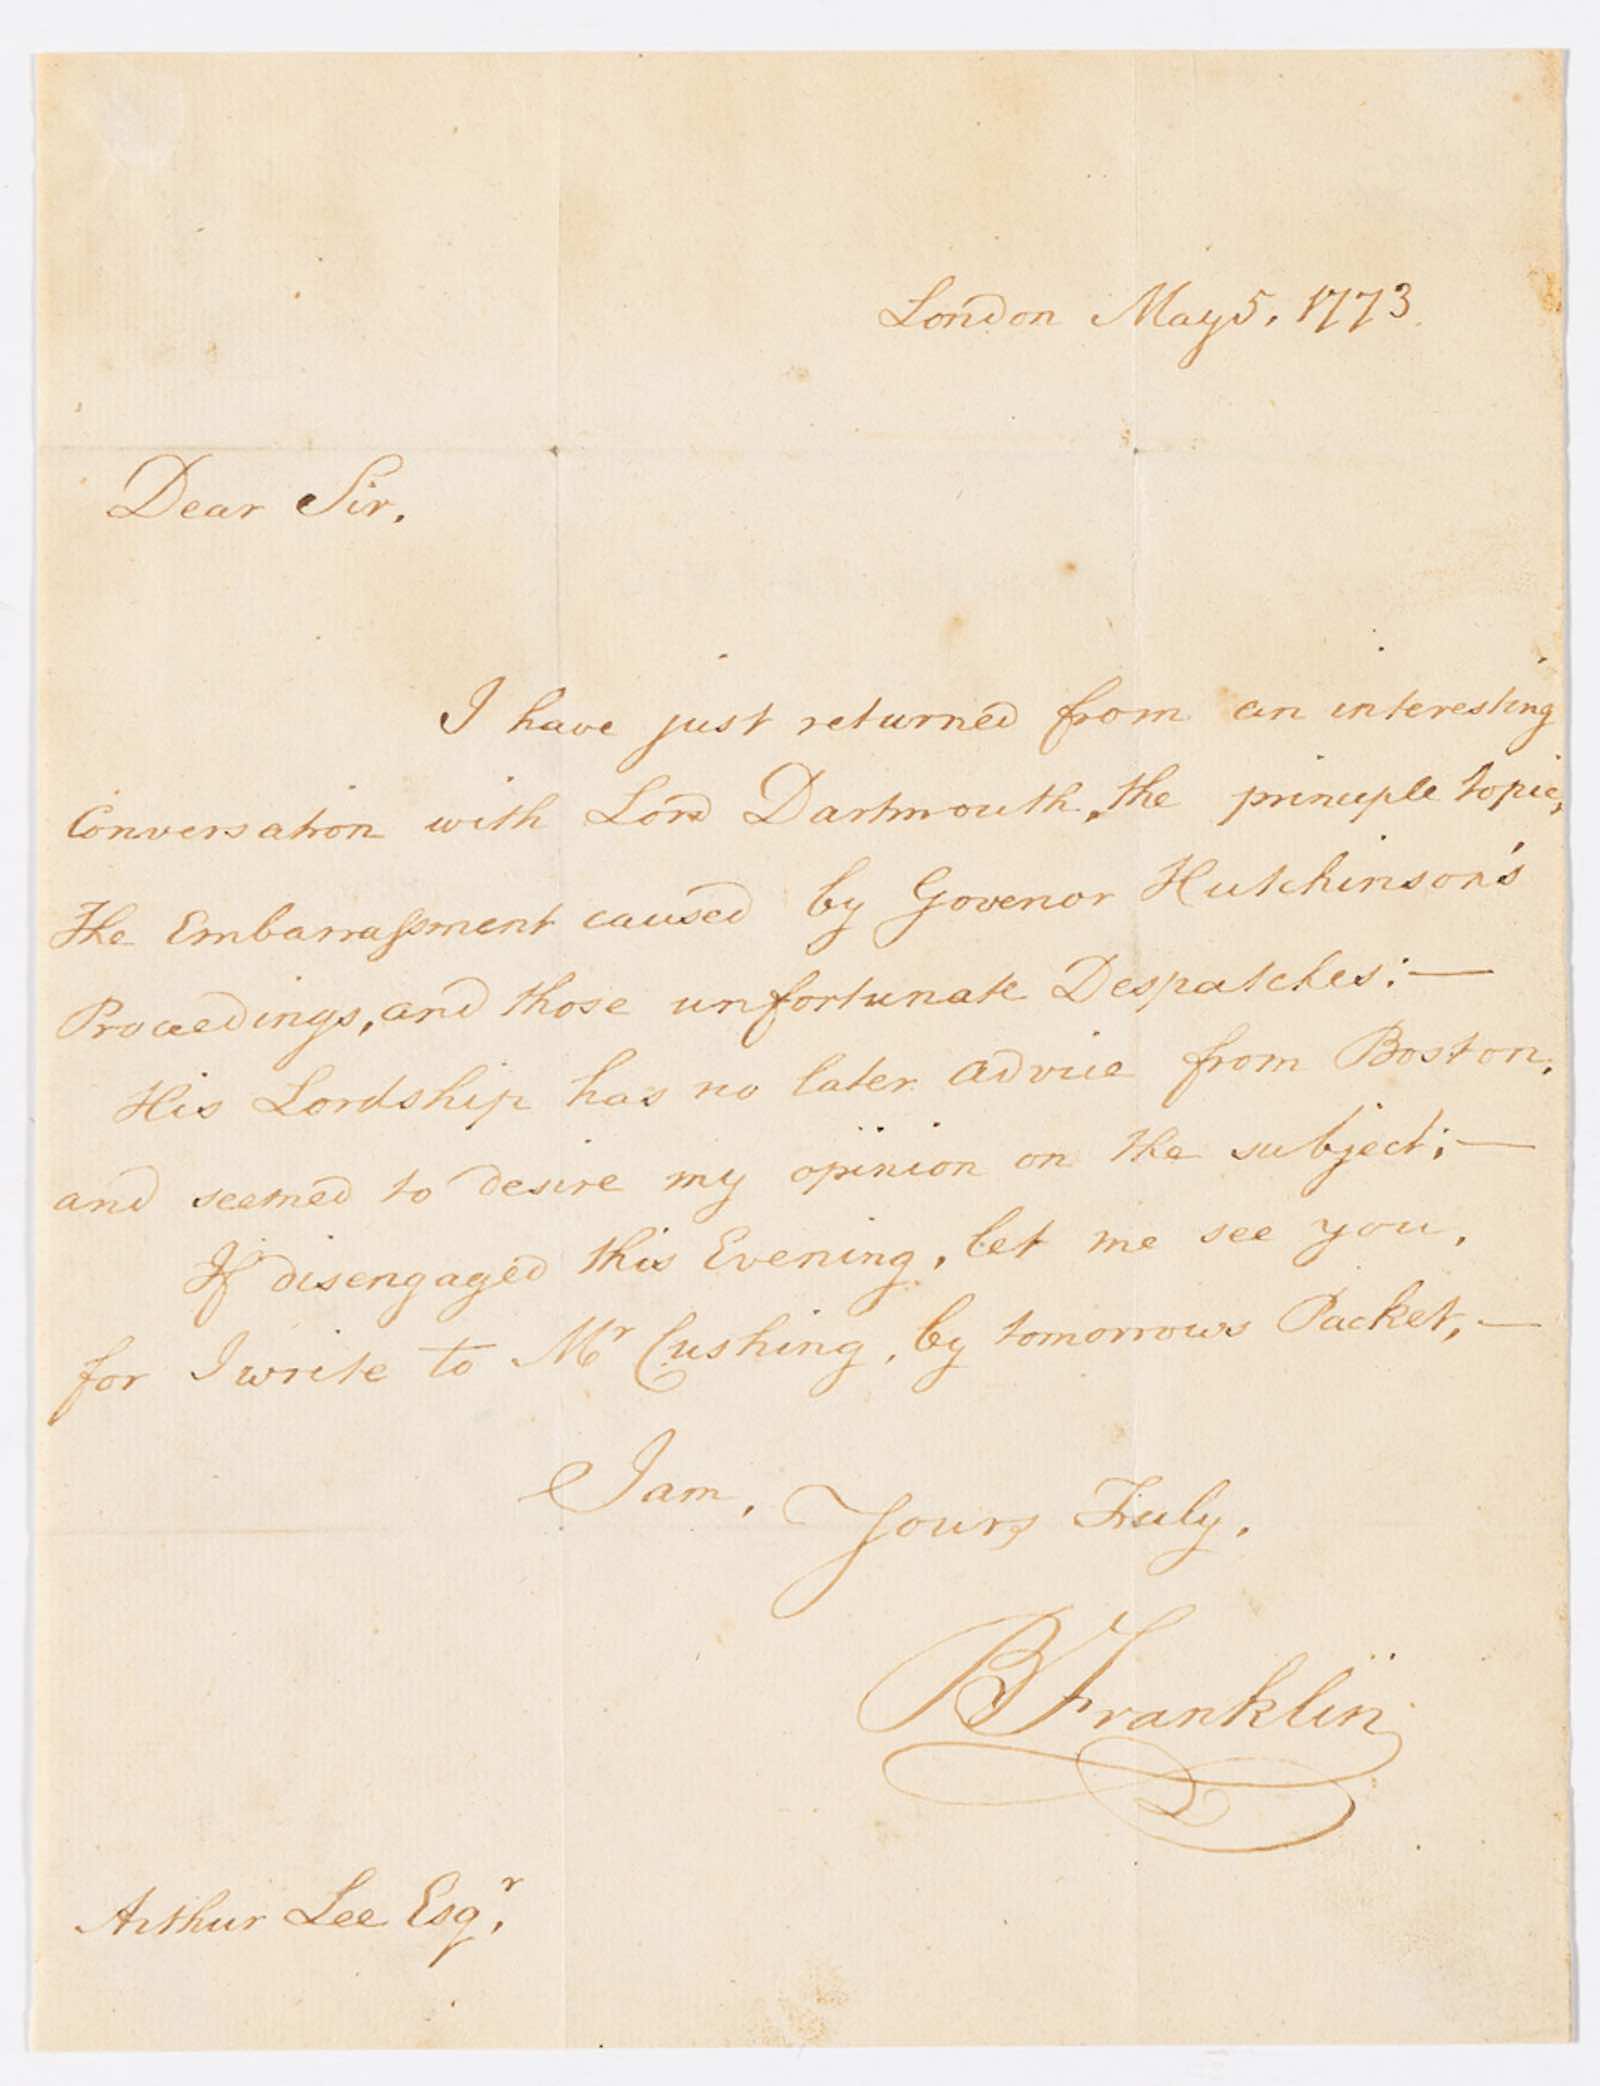 London May 5, 1773.
Dear Sir,
I have just returned from an interesting
Conversation with Lord Dartmouth, the principle topic,
the Embarrassment caused by Govenor Hutchinson's
Proceedings, and those unfortunate Despatches: —
His Lordship has no later advice from Boston,
and seemed to desire my opinion on the subject; —
If disengaged this Evening, let me see you,
for I write to Mr Cushing, by tomorrows Packet, —
I am, Yours Truly,
B Franklin
Arthur Lee Esqr,